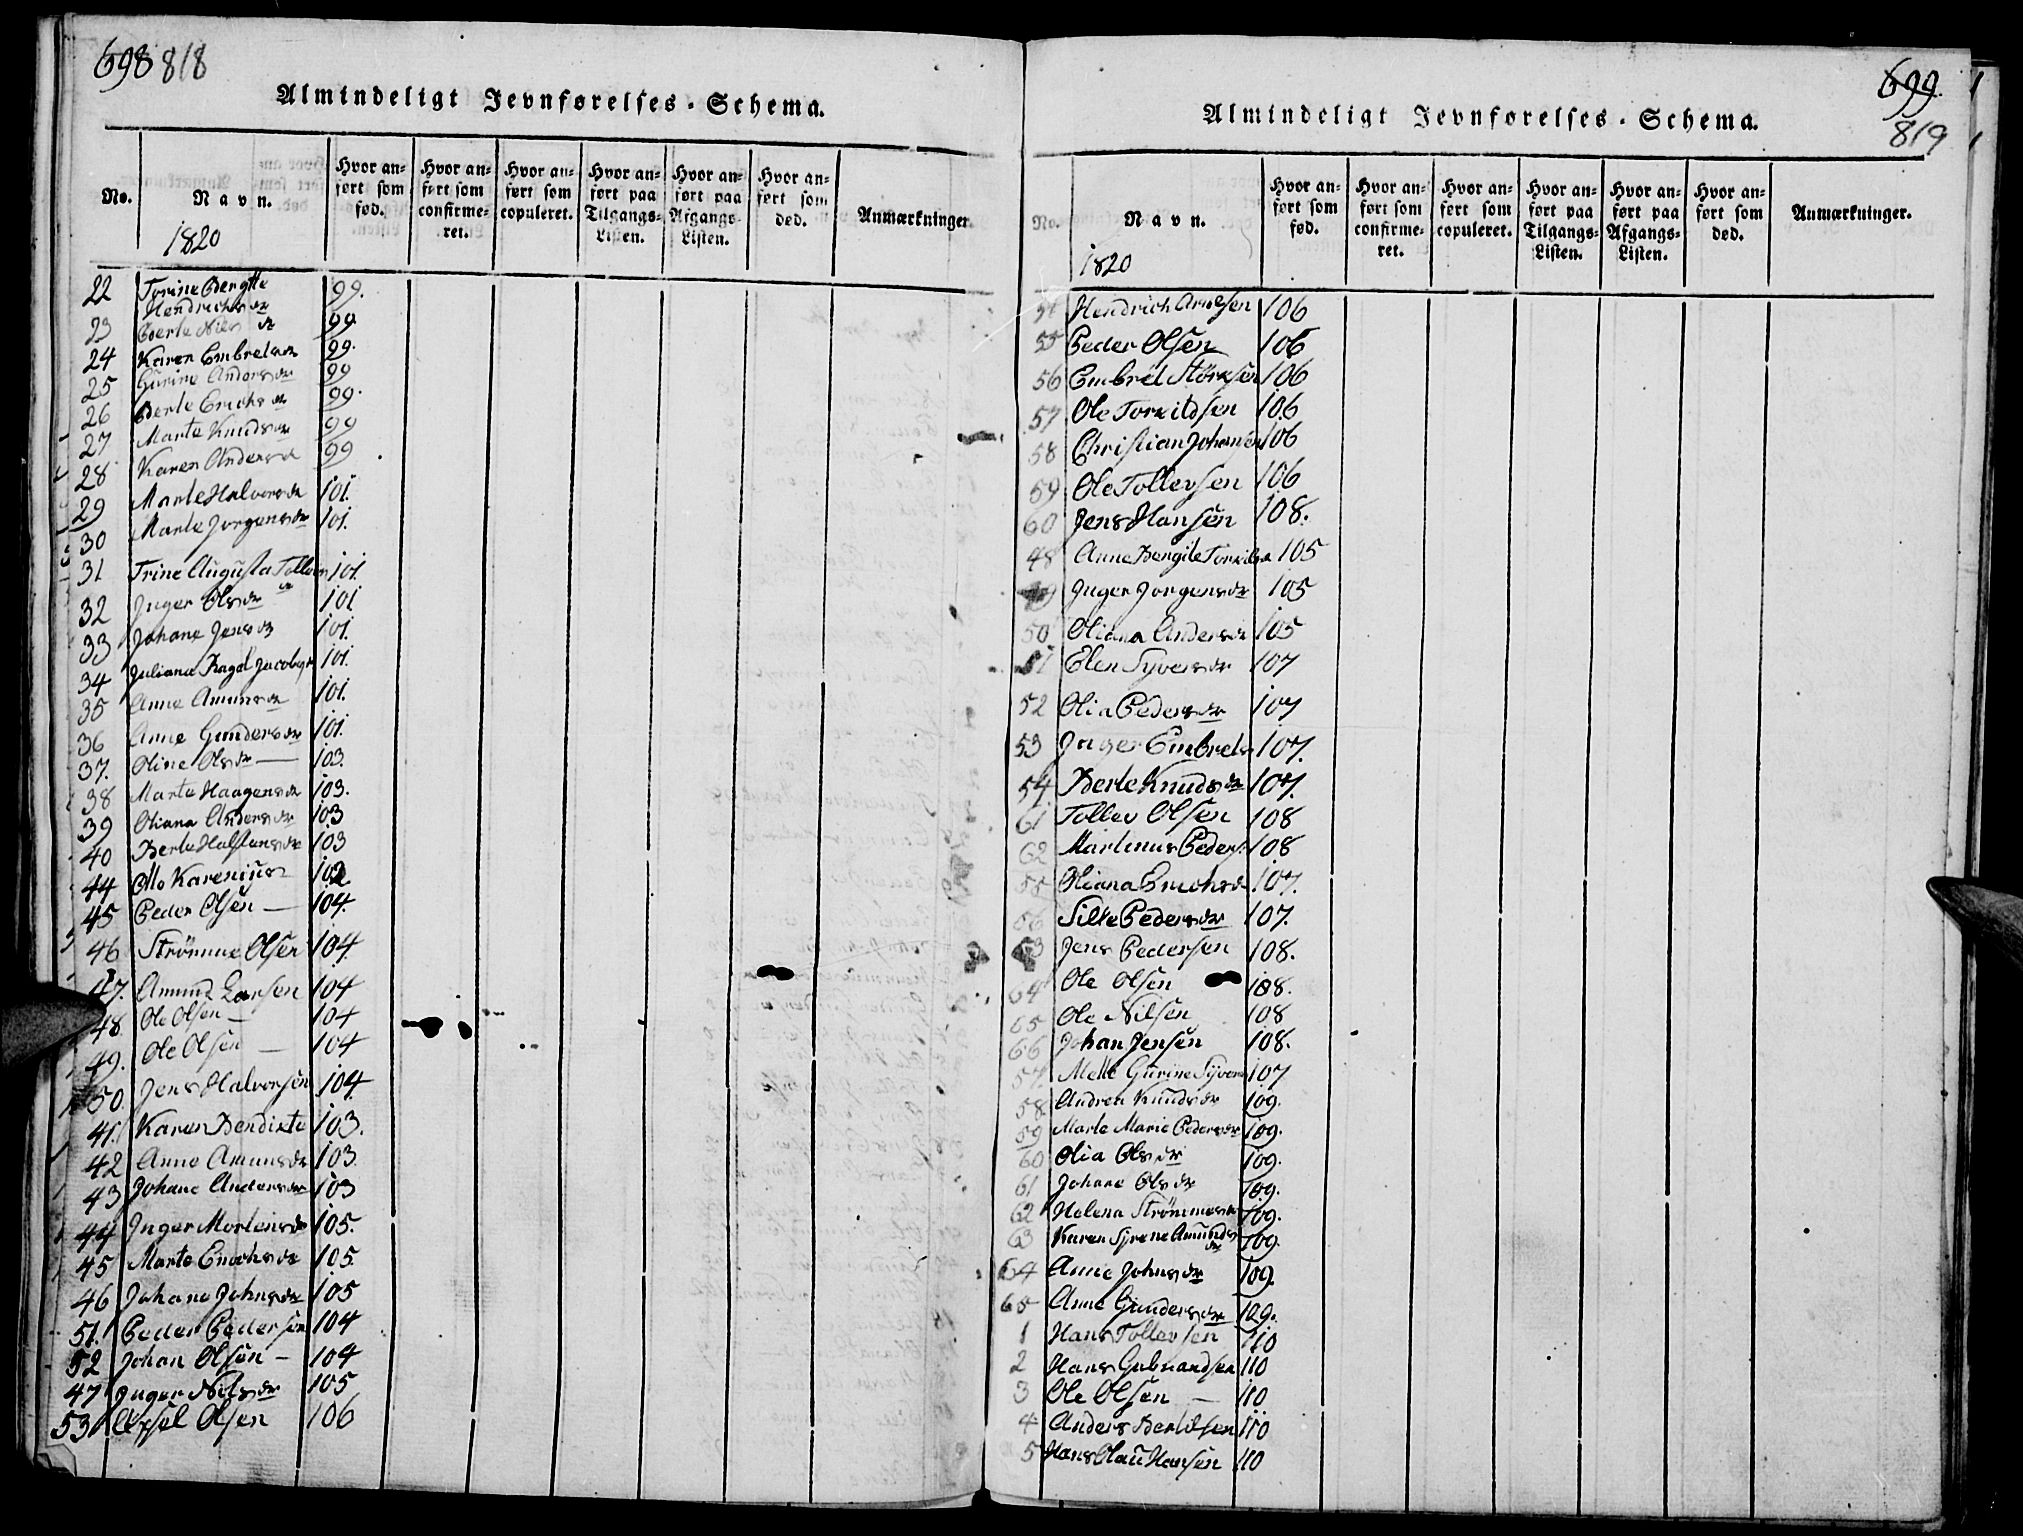 698 818
Almindeligt Jevnførelses-Schema.
No. Navn. Hvor anført som fød. Hvor anført som confirmeret. Hvor anført som copuleret. Hvor anført paa Tilgangs-Listen. Hvor anført paa Afgangs-Listen. Hvor anført som død. Anmærkninger.
1820
22 Torine Bergitte Hendrichsdr 99.
23 Berte Nilsdr 99
24 Karen Embretsdr 99.
25 Gurine Andersdr 99
26 Berte Erichsdr 99.
27 Marte Knudsdr 99
28 Karen Andersdr 99
29 Marte Halvorsdr 101.
30 Marte Jorgensdr 101.
31 Trine Augusta Tollevsdr 101.
32 Inger Olsdr 101
33 Johane Jensdr 101.
34 Juliana Ragel Jacobsdr 101.
35 Anne Amunsdr 101.
36 Anne Gundersdr 101.
37. Oline Olsdr — 103.
38 Marte Haagensdr 103.
39 Oliana Andersdr 103
40 Berte Halstensdr 103
44 Otto Karenius 102
45 Peder Olsen — 104.
46 Strömme Olsen 104.
47. Amund Larsen 104
48 Ole Olsen — 104
49. Ole Olsen — 104
50 Jens Halvorsen 104.
41. Karen Bendixte 103.
42 Anne Amunsdr 103.
43 Johane Andersdr 103
44 Inger Mortensdr 105.
45 Marte Enochsdr 105.
46 Johane Johnsdr 105
51. Peder Pedersen 104
52 Johan Olsen — 104
47 Inger Nilsdr 105
53 Axsel Olsen 106
699.
819
Almindeligt Jevnførelses-Schema.
No. Navn. Hvor anført som fød. Hvor anført som confirmeret. Hvor anført som copuleret. Hvor anført paa Tilgangs-Listen. Hvor anført paa Afgangs-Listen. Hvor anført som død. Anmærkninger.
1820
54 Hendrich Arnesen 106
55 Peder Olsen 106
56 Embret Störksen 106
57 Ole Torkildsen 106
58 Christian Johansen 106
59 Ole Tollevsen 106
60 Jens Hansen 108.
48 Anne Bergite Torkilsdr 105
49 Inger Jorgensdr 105
50 Oliana Andersdr 105
51 Elen Syversdr 107
52 Olia Pedersdr 107
53 Inger Embretsdr 107.
54 Berte Knudsdr 107.
61 Tollev Olsen 108
62 Martinus Peders. 108
55 Oliana Enochsdr 107.
56 Silke Pedersdr 107.
63 Jens Pedersen 108.
64 Ole Olsen 108.
65 Ole Nilsen 108
66 Johan Jensen 108.
57. Mette Gurine Syvers 107
58 Andrea Knudsdr 109.
59 Marte Marie Pedersdr 109.
60 Olia Olsdr 109.
61 Johane Olsdr 109.
62 Helena Strömmesdr 109.
63 Karen Syrene Amundsdr 109.
64 Anne Johnsdr 109.
65 Anne Gundersdr 109.
1 Hans Tollevsen 110
2 Hans Gulbrandsen 110
3 Ole Olsen — 110
4 Anders Bertilsen 110
5 Hans Olaü Hansen 110